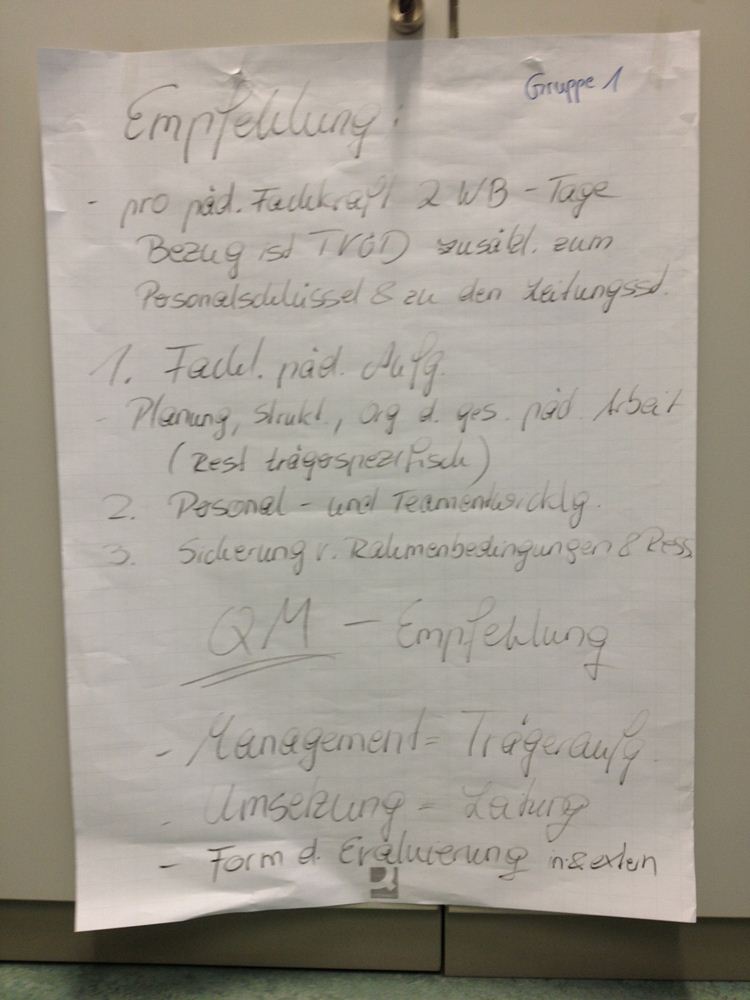 Gruppe 1
Empfehlung:
- pro päd. Fachkraft 2 WB - Tage
Bezug ist TVÖD zusätzl. zum
Personalschlüssel & zu den Leitungsst.
1. Fachl. päd. Aufg.
- Planung, Strukt., Org d. ges. päd. Arbeit
(Rest trägerspezifisch)
2. Personal - und Teamentwicklg.
3. Sicherung v. Rahmenbedingungen & Ress
QM - Empfehlung
- Management = Trägeraufg.
- Umsetzung = Leitung
- Form d. Evaluierung in & extern